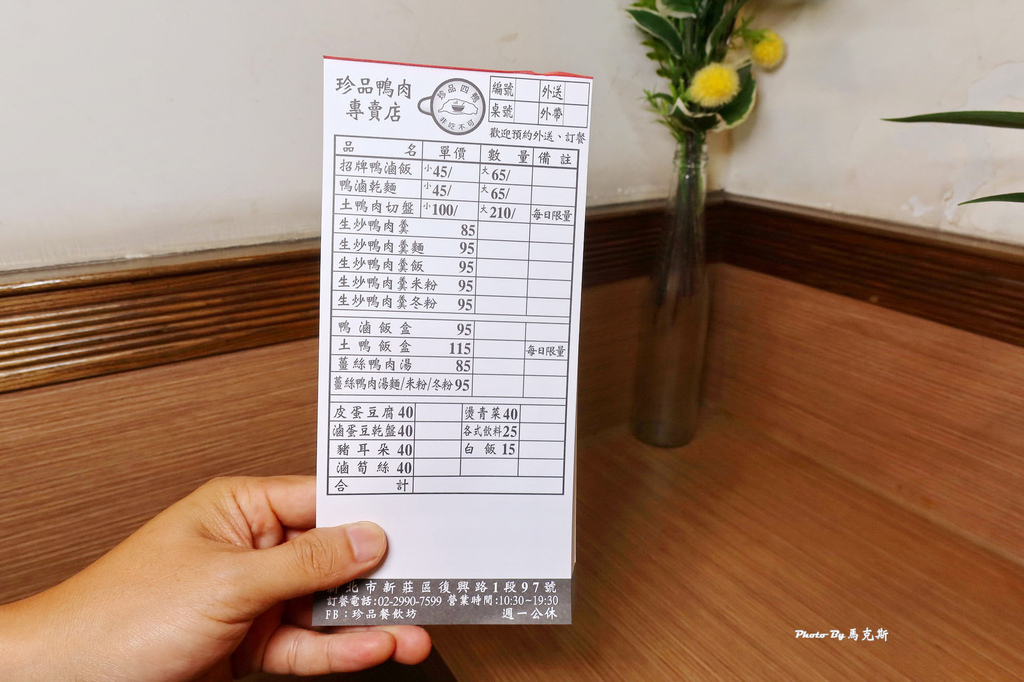 珍品鴨肉
專賣店
珍品四鴨
非吃不可
編號 外送
桌號 外帶
歡迎預約外送、訂餐
品名 單價 數量 備註
招牌鴨滷飯 小45/ 大65/
鴨滷乾麵 小45/ 大65/
土鴨肉切盤 小100/ 大210/ 每日限量
生炒鴨肉羹 85
生炒鴨肉羹麵 95
生炒鴨肉羹飯 95
生炒鴨肉羹米粉 95
生炒鴨肉羹冬粉 95
鴨滷飯盒 95
土鴨飯盒 115 每日限量
薑絲鴨肉湯 85
薑絲鴨肉湯麵/米粉/冬粉 95
皮蛋豆腐 40 燙青菜 40
滷蛋豆乾盤 40 各式飲料 25
豬耳朵 40 白飯 15
滷筍絲 40
合計
新北市新莊區復興路1段97號
訂餐電話:02-2990-7599 營業時間:10:30~19:30
FB:珍品餐飲坊 週一公休
Photo By 馬克斯